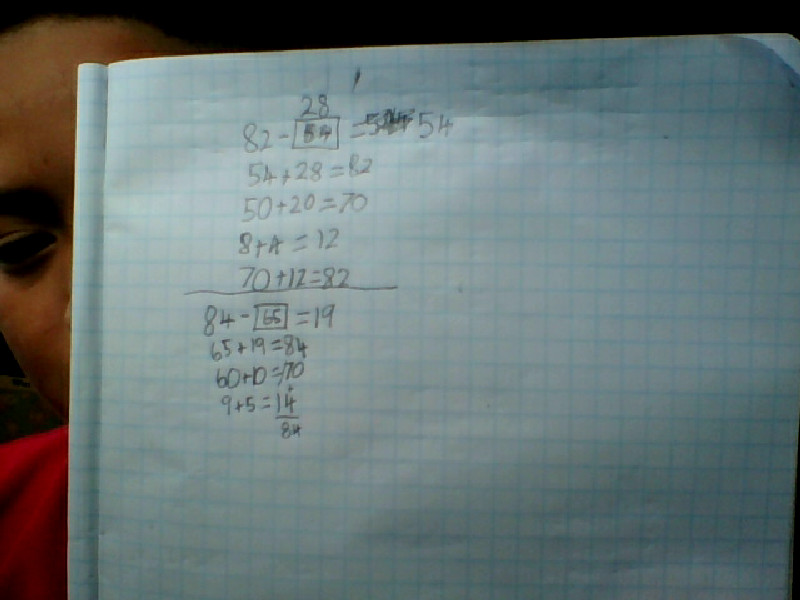 28
82 - 54 = 54
54 + 28 = 82
50 + 20 = 70
8 + 4 = 12
70 + 12 = 82
84 - 65 = 19
65 + 19 = 84
60 + 10 = 70
9 + 5 = 14
84